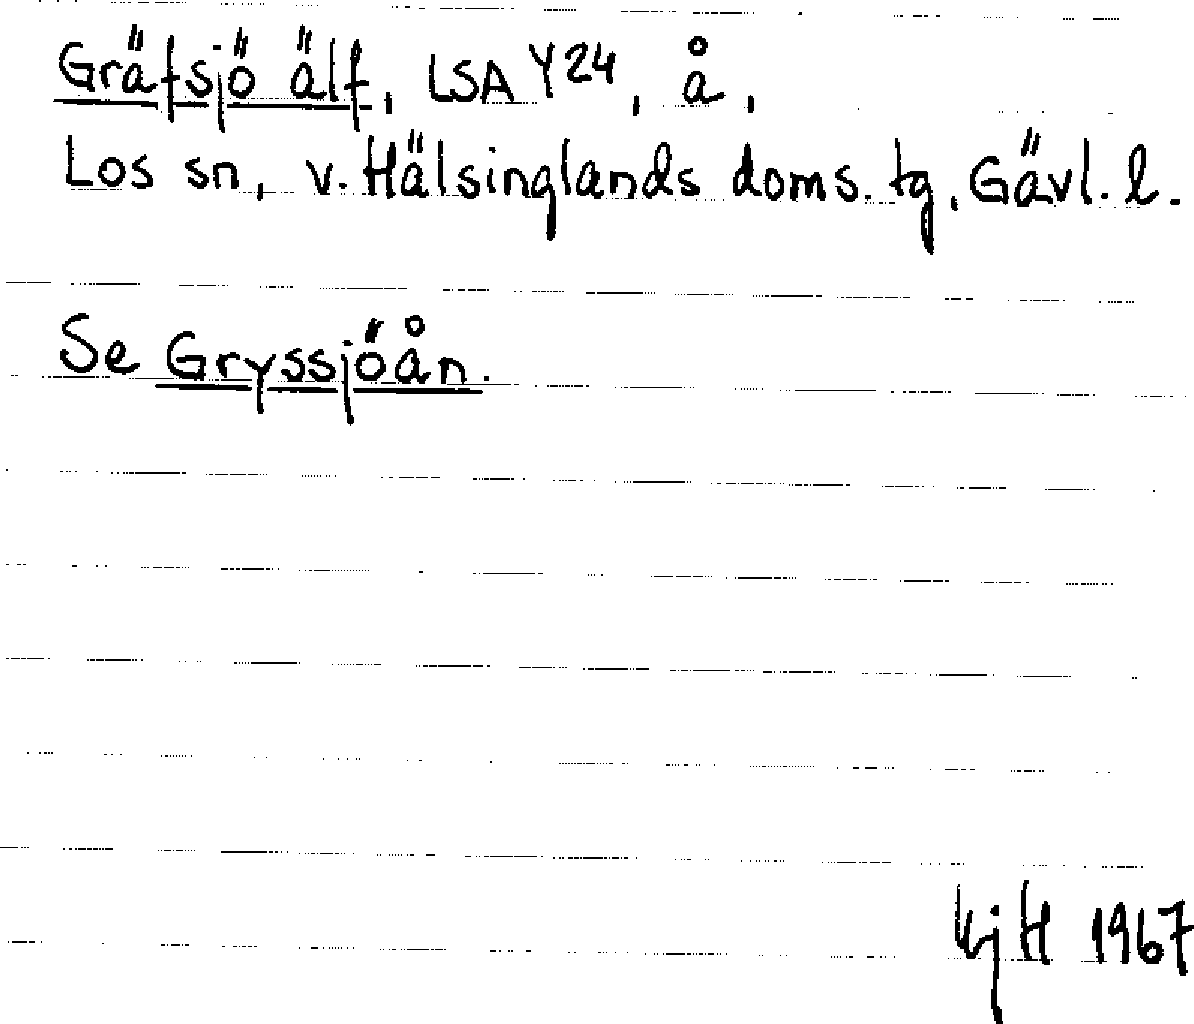 Gräfsjö älf, LSA Y24, å,
Los sn, v. Hälsinglands doms. tg, Gävl. l.
Se Gryssjöån.
KjH 1967